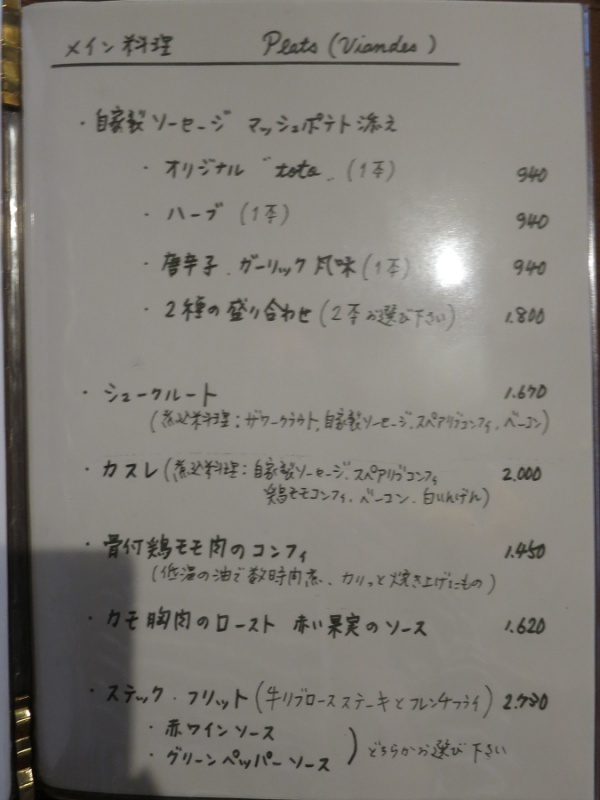 メイン料理 Plats (Viandes)
・自家製ソーセージ マッシュポテト添え
・オリジナル "toto" (1本) 940
・ハーブ (1本) 940
・唐辛子、ガーリック風味 (1本) 940
・2種の盛り合わせ (2本お選び下さい) 1.800
・シュークルート 1.670
(煮込料理：ザワークラウト、自家製ソーセージ、スペアリブコンフィ、ベーコン)
・カスレ (煮込料理：自家製ソーセージ、スペアリブコンフィ 2.000
鶏モモコンフィ、ベーコン、白いんげん)
・骨付鶏モモ肉のコンフィ 1.450
(低温の油で数時間煮、カリッと焼き上げたもの)
・カモ胸肉のロースト 赤い果実のソース 1.620
・ステック・フリット (牛リブロースステーキとフレンチフライ) 2.730
・赤ワインソース
・グリーンペッパーソース ) どちらかお選び下さい